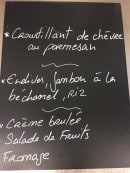 * Croustillant de chèvre
au parmesan
* Endives, Jambon à la
béchamel, Riz
- Crème brulée
- Salade de Fruits
Fromage